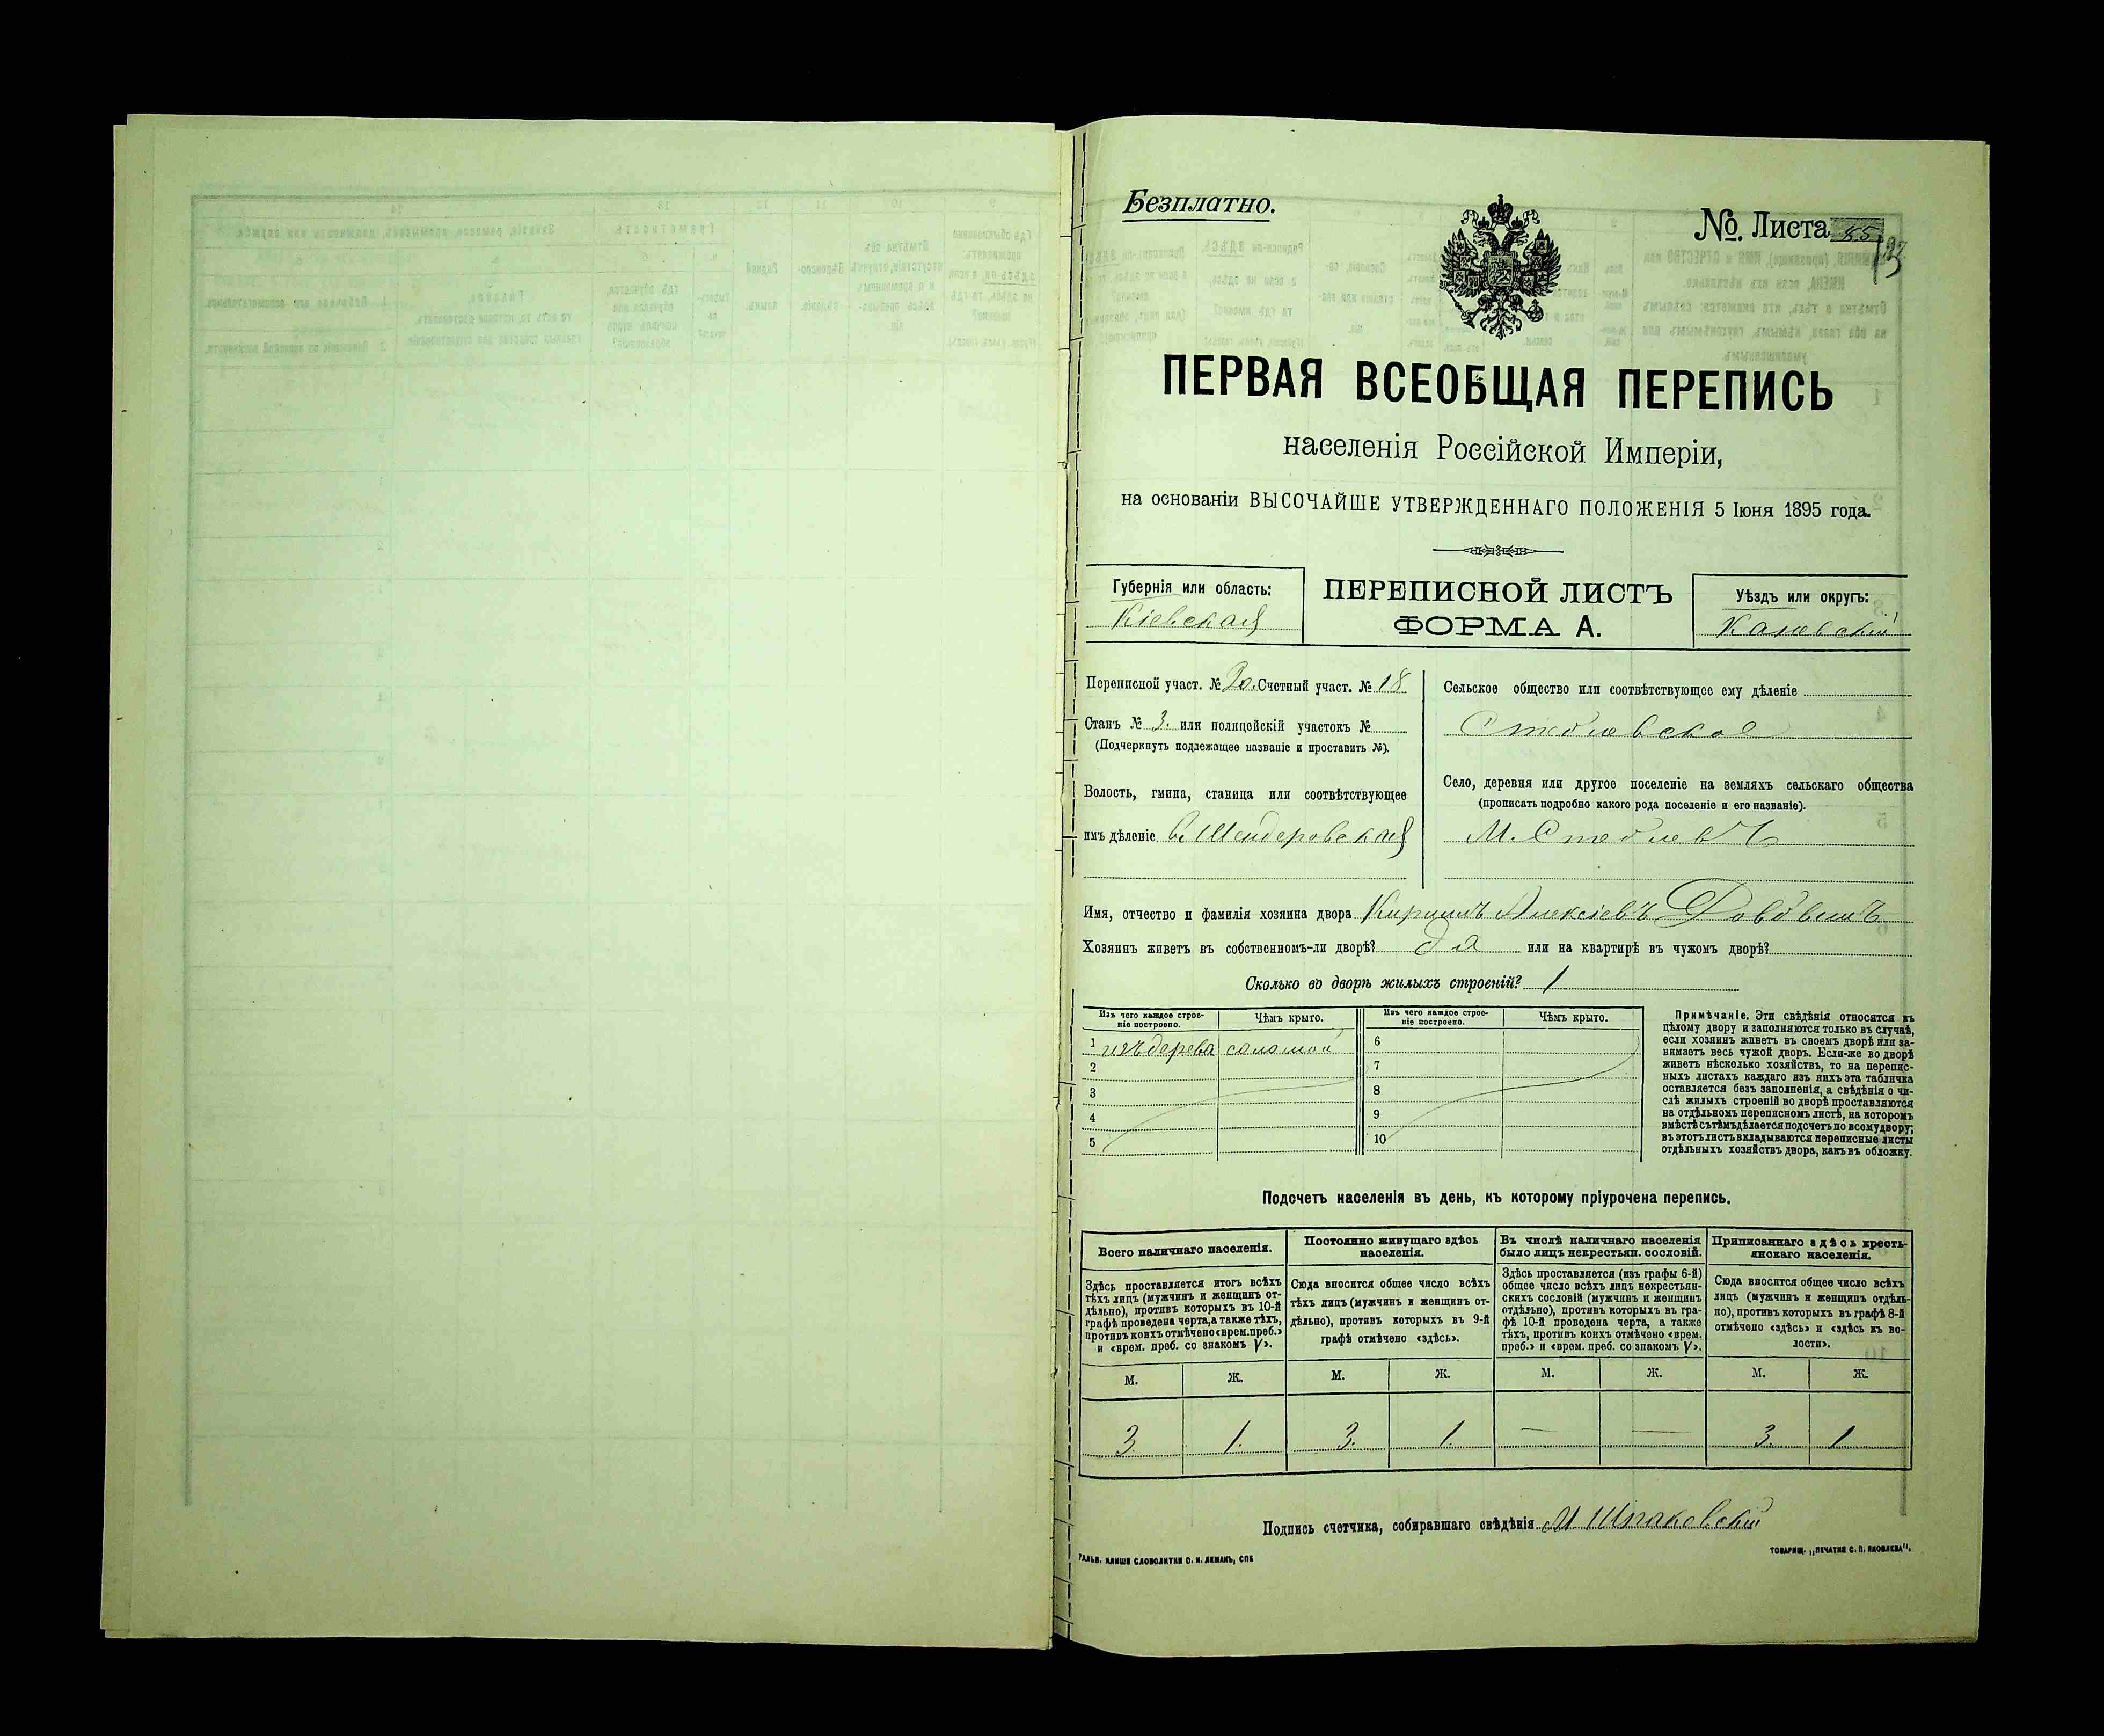 Безплатно.
№. Листа 85
ПЕРВАЯ ВСЕОБЩАЯ ПЕРЕПИСЬ
населенія Россійской Имперіи,
на основаніи ВЫСОЧАЙШЕ УТВЕРЖДЕННАГО ПОЛОЖЕНІЯ 5 Іюня 1895 года.
Губернія или область:
Кіевская
ПЕРЕПИСНОЙ ЛИСТЪ
ФОРМА А.
Уѣздъ или округъ:
Каневскій
Переписной участ. № 20. Счетный участ. № 18
Станъ № 3. или полицейскій участокъ №
(Подчеркнуть подлежащее названіе и проставить №).
Волость, гмина, станица или соотвѣтствующее
имъ дѣленіе в. Шендеровская
Сельское общество или соотвѣтствующее ему дѣленіе
Стеблевское
Село, деревня или другое поселеніе на земляхъ сельскаго общества
(прописать подробно какого рода поселеніе и его названіе).
М. Стеблевъ
Имя, отчество и фамилія хозяина двора Кириллъ Алексіевъ
Хозяинъ живетъ въ собственномъ-ли дворѣ? да или на квартирѣ въ чужомъ дворѣ?
Сколько во дворѣ жилыхъ строеній? 1
Изъ чего каждое строе-
ніе построено.
Чѣмъ крыто.
1 изъ дерева соломой
2
3
4
5
Изъ чего каждое строе-
ніе построено.
Чѣмъ крыто.
6
7
8
9
10
Примѣчаніе. Эти свѣдѣнія относятся къ
цѣлому двору и заполняются только въ случаѣ,
если хозяинъ живетъ въ своемъ дворѣ или за-
нимаетъ весь чужой дворъ. Если-же во дворѣ
живетъ нѣсколько хозяйствъ, то на перепис-
ныхъ листахъ каждаго изъ нихъ эта табличка
оставляется безъ заполненія, а свѣдѣнія о чи-
слѣ жилыхъ строеній во дворѣ проставляются
на отдѣльномъ переписномъ листѣ, на которомъ
вмѣстѣ съ тѣмъ дѣлается подсчетъ по всему двору;
въ этотъ листъ вкладываются переписные листы
отдѣльныхъ хозяйствъ двора, какъ въ обложку.
Подсчетъ населенія въ день, къ которому пріурочена перепись.
Всего наличнаго населенія.
Здѣсь проставляется итогъ всѣхъ
тѣхъ лицъ (мужчинъ и женщинъ от-
дѣльно), противъ которыхъ въ 10-й
графѣ проведена черта, а также тѣхъ,
противъ коихъ отмѣчено «врем. преб.»
и «врем. преб. со знакомъ V».
Постоянно живущаго здѣсь
населенія.
Сюда вносится общее число всѣхъ
тѣхъ лицъ (мужчинъ и женщинъ от-
дѣльно), противъ которыхъ въ 9-й
графѣ отмѣчено «здѣсь».
Въ числѣ наличнаго населенія
было лицъ некрестьян. сословій.
Здѣсь проставляется (изъ графы 6-й)
общее число всѣхъ лицъ некрестьян-
скихъ сословій (мужчинъ и женщинъ
отдѣльно), противъ которыхъ въ гра-
фѣ 10-й проведена черта, а также
тѣхъ, противъ коихъ отмѣчено «врем.
преб.» и «врем. преб. со знакомъ V».
Приписаннаго здѣсь кресть-
янскаго населенія.
Сюда вносится общее число всѣхъ
лицъ (мужчинъ и женщинъ отдѣль-
но), противъ которыхъ въ графѣ 8-й
отмѣчено «здѣсь» и «здѣсь къ во-
лости».
М. Ж. М. Ж. М. Ж. М. Ж.
3. 1. 3. 1. — — 3. 1
Подпись счетчика, собиравшаго свѣдѣнія М. Шпаковскій
ГАЛЬВ. КЛИШЕ СЛОВОЛИТНИ О. И. ЛЕМАНЪ, СПБ
ТОВАРИЩ. „ПЕЧАТНЯ С. П. ЯКОВЛЕВА".